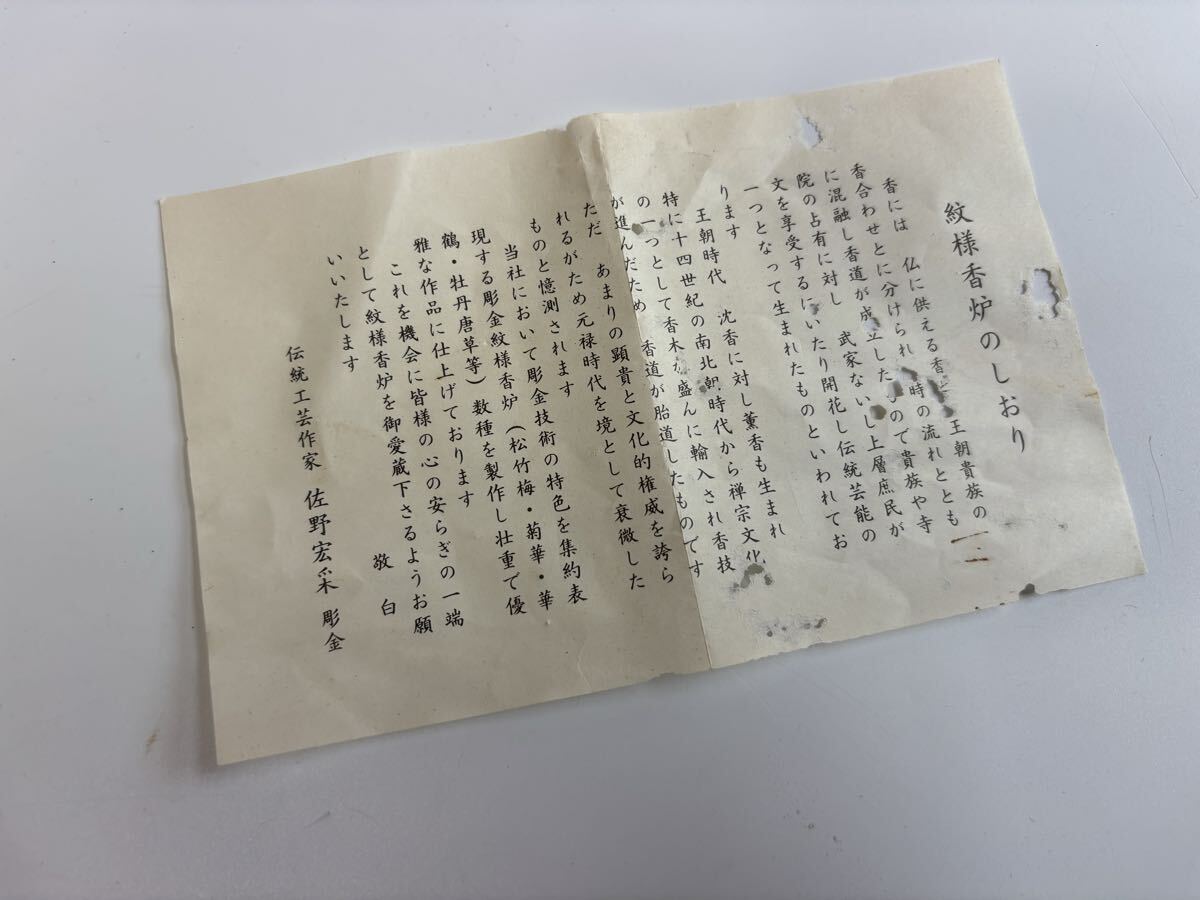 紋様香炉のしおり
香には 仏に供える香と 王朝貴族の
香合わせとに分けられ 時の流れととも
に混融し香道が成立したので貴族や寺
院の占有に対し 武家ないし上層庶民が
文を享受するにいたり開花し伝統芸能の
一つとなって生まれたものといわれてお
ります
王朝時代 沈香に対し薫香も生まれ
特に十四世紀の南北朝時代から禅宗文化
の一つとして香木が盛んに輸入され香技
が進んだため 香道が胎道したものです
ただ あまりの顕貴と文化的権威を誇ら
れるがため元禄時代を境として衰微した
ものと憶測されます
当社において彫金技術の特色を集約表
現する彫金紋様香炉(松竹梅・菊華・華
鶴・牡丹唐草等)数種を製作し壮重で優
雅な作品に仕上げております
これを機会に皆様の心の安らぎの一端
として紋様香炉を御愛蔵下さるようお願
いいたします
敬白
伝統工芸作家 佐野宏采 彫金